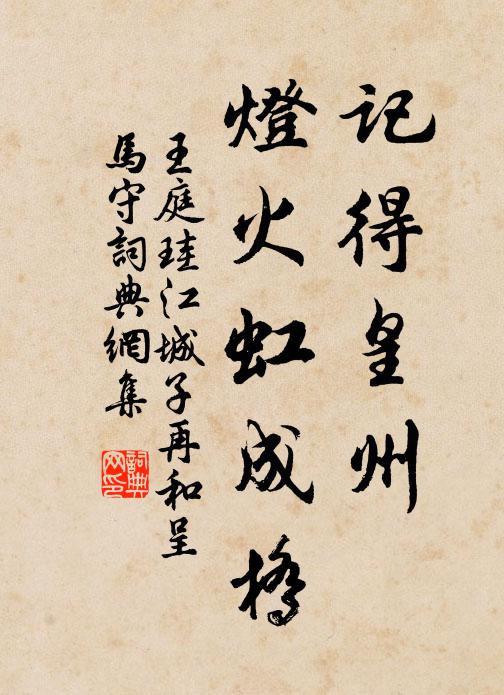 記得皇州
燈火虹成橋
王庭珪江城子再和呈
馬守詞典網集
詞典網印